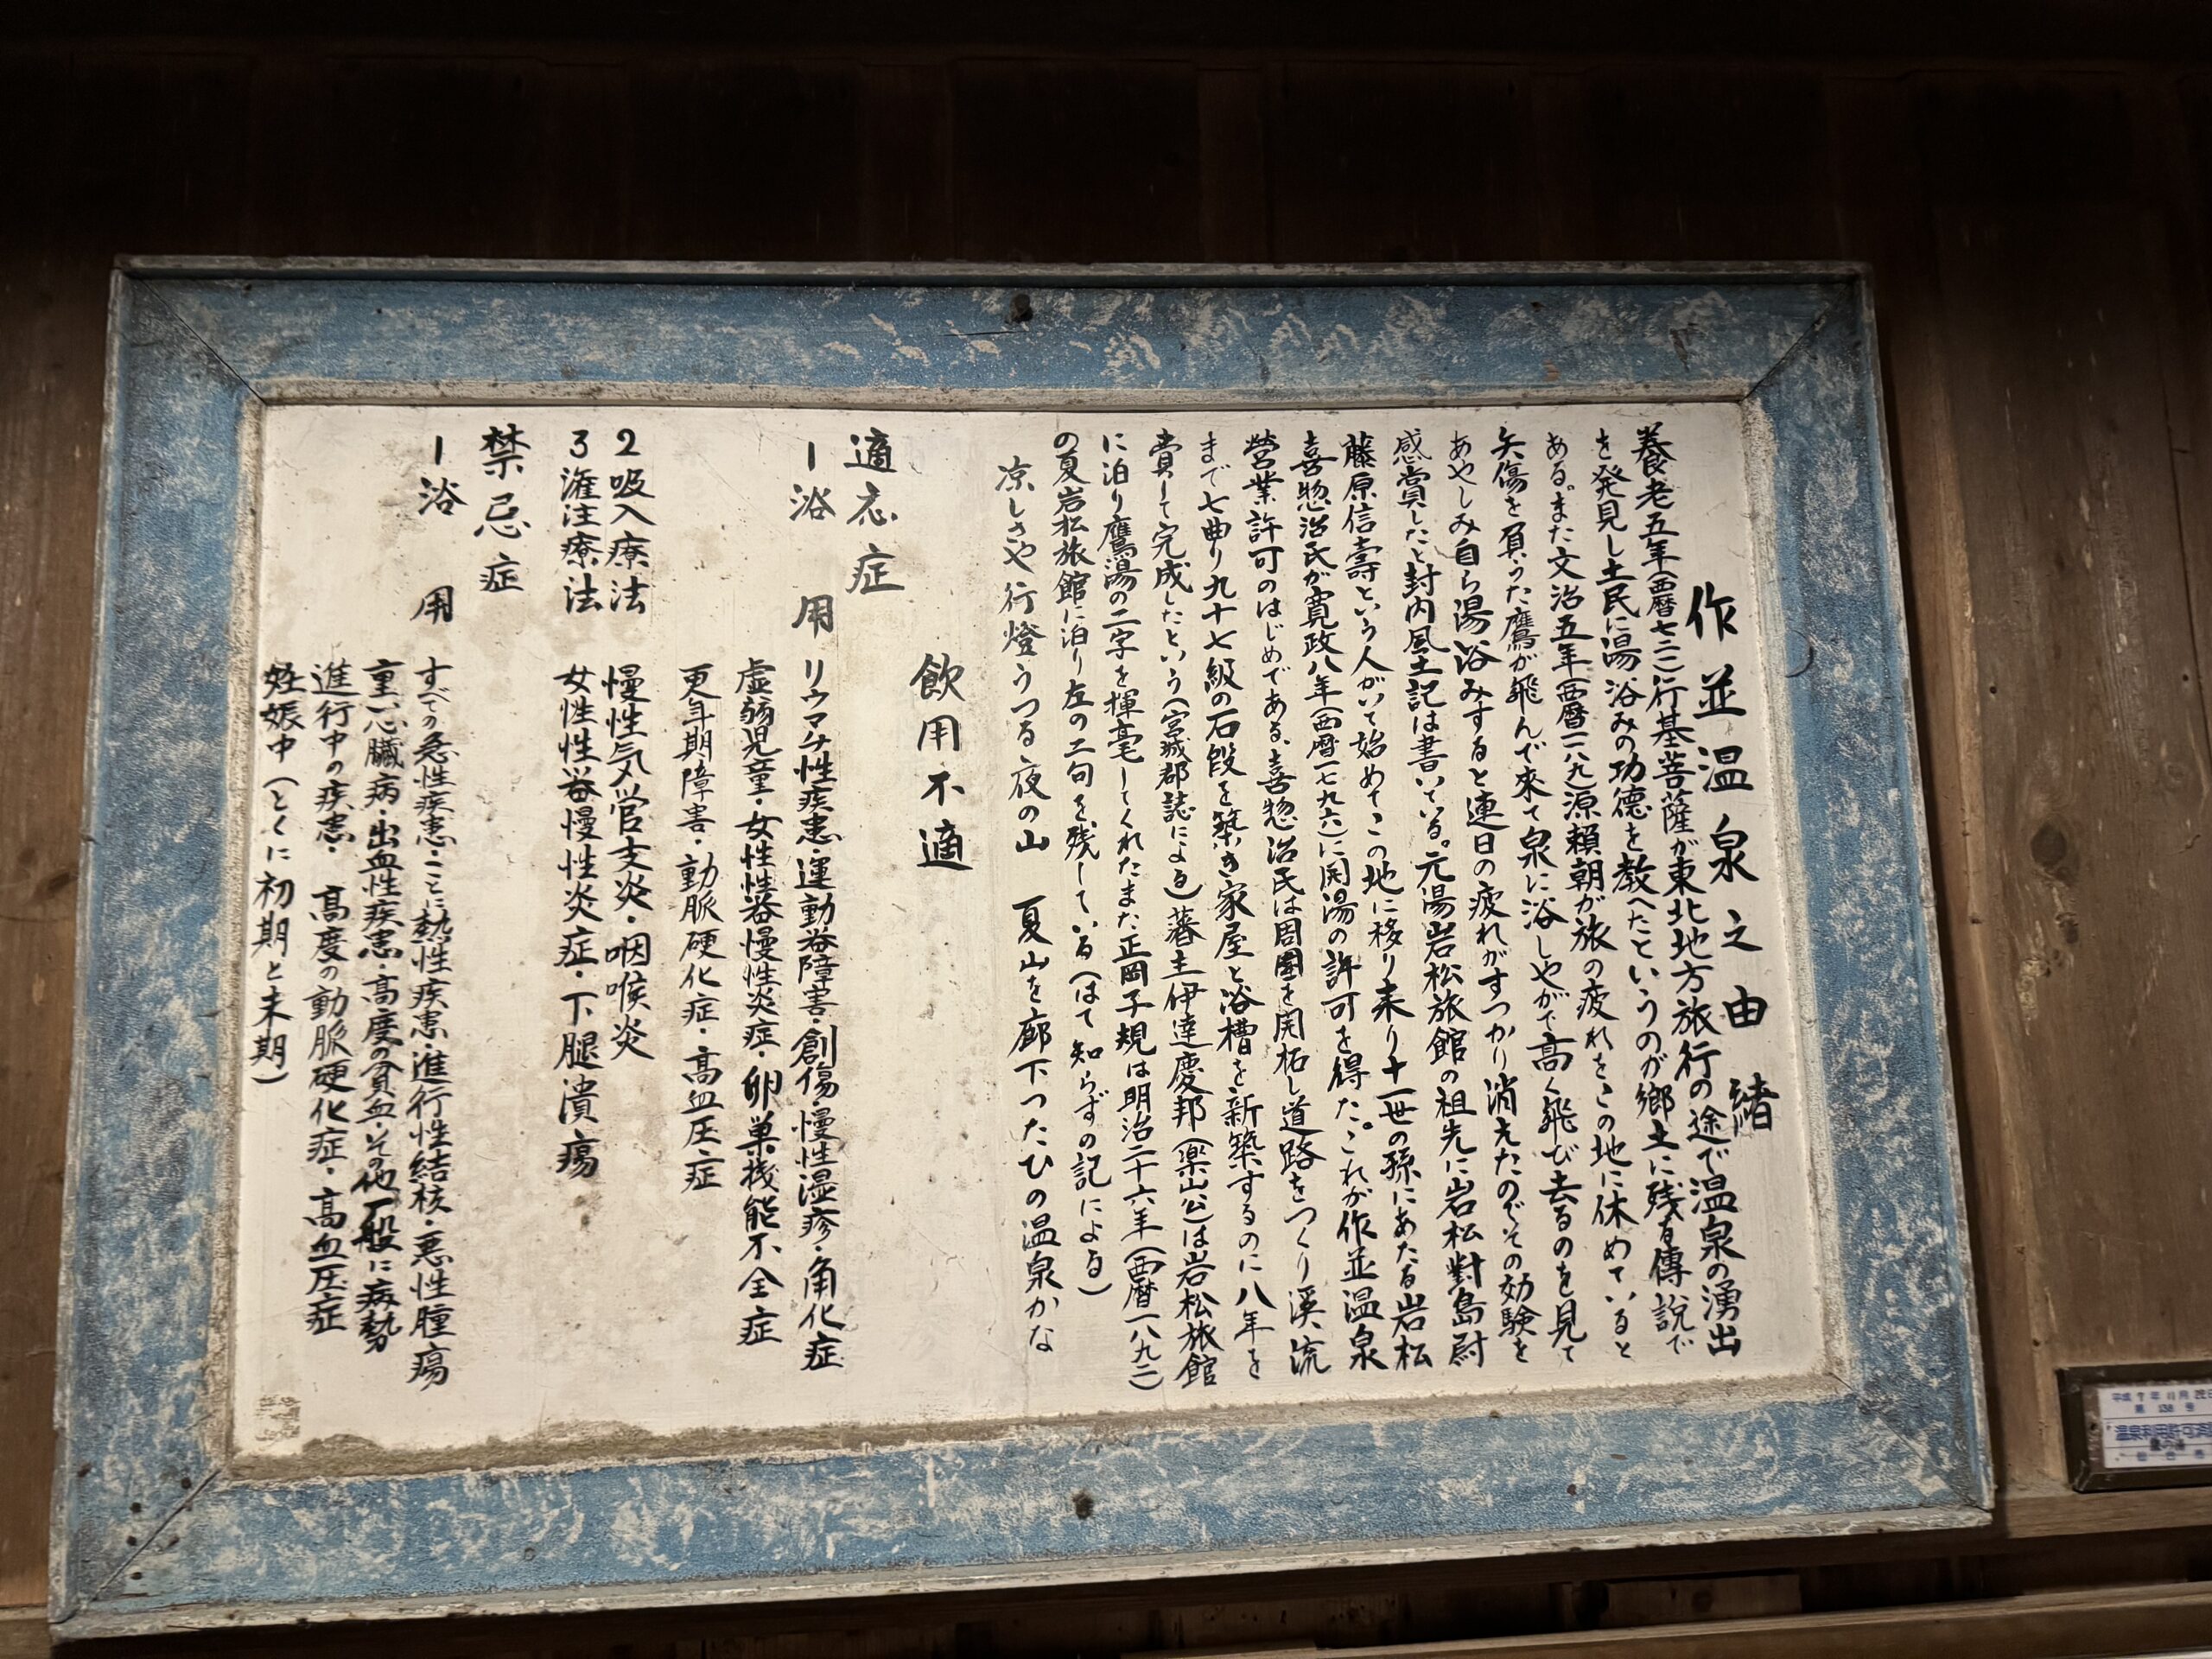 作並温泉之由緒
養老五年(西暦七二一)に行基菩薩が東北地方旅行の途で温泉の湧出
を発見し土民に湯浴みの功徳を教へたというのが郷土に残る傳説で
ある。また文治五年(西暦一一八九)源頼朝が旅の疲れをこの地に休めていると
矢傷を負うた鷹が飛んで来て泉に浴しやがて高く飛び去るのを見て
あやしみ自ら湯浴みすると連日の疲れがすつかり消えたのでその効験を
感賞したと封内風土記は書いている。元湯岩松旅館の祖先に岩松對島尉
藤原信壽という人がいて始めてこの地に移り来り十一世の孫にあたる岩松
喜惣治民が寛政八年(西暦一七九六)に開湯の許可を得た。これが作並温泉
營業許可のはじめである。喜惣治民は周圍を開拓し道路をつくり溪流
まで七曲り九十七級の石段を築き家屋と浴槽を新築するのに八年を
費して完成したという(宮城郡誌による)藩主伊達慶邦(楽山公)は岩松旅館
に泊り鷹湯の二字を揮毫してくれたまた正岡子規は明治二十六年(西暦一八九二)
の夏岩松旅館に泊り左の二句を残している(はて知らずの記による)
涼しさや行燈うつる夜の山 夏山を廊下つたひの温泉かな
飲用不適
適応症
1 浴用 リウマチ性疾患・運動器障害・創傷・慢性湿疹・角化症
虚弱児童・女性性器慢性炎症・卵巣機能不全症
更年期障害・動脈硬化症・高血圧症
2 吸入療法 慢性気管支炎・咽喉炎
3 潅注療法 女性性器慢性炎症・下腿潰瘍
禁忌症
1 浴用 すべての急性疾患・ことに熱性疾患・進行性結核・悪性腫瘍
重い心臓病・出血性疾患・高度の貧血・その他一般に病勢
進行中の疾患・高度の動脈硬化症・高血圧症
妊娠中(とくに初期と末期)
平成7年11月
第138号
温泉利用許可済